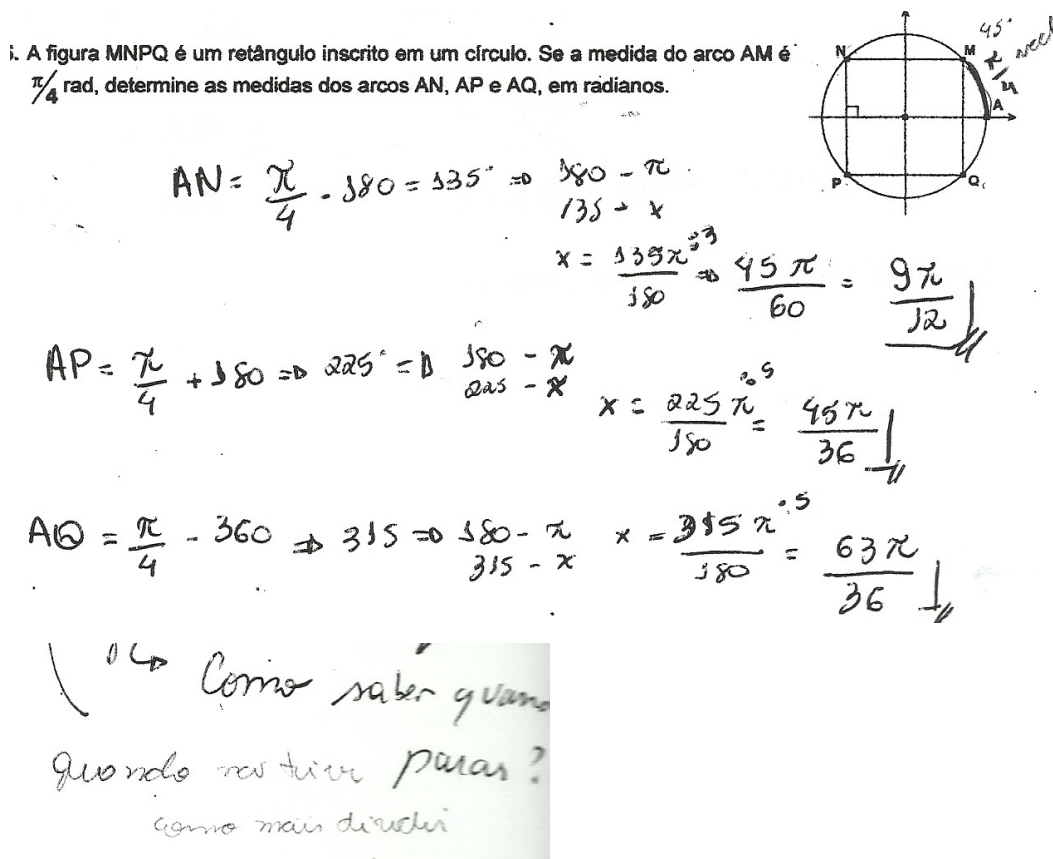 5. A figura MNPQ é um retângulo inscrito em um círculo. Se a medida do arco AM é
π/4 rad, determine as medidas dos arcos AN, AP e AQ, em radianos.
45°
π/4
N
M
A
P
Q
AN = π/4 - 180 = 135° ⇒ 180 - π
135 - x
x = 135π/180 :3 ⇒ 45π/60 = 9π/12
AP = π/4 + 180 ⇒ 225° ⇒ 180 - π
225 - x
x = 225π/180 :5 = 45π/36
AQ = π/4 - 360 ⇒ 315 ⇒ 180 - π
315 - x
x = 315π/180 :5 = 63π/36
Como saber quano
quando parar?
como mais dividir